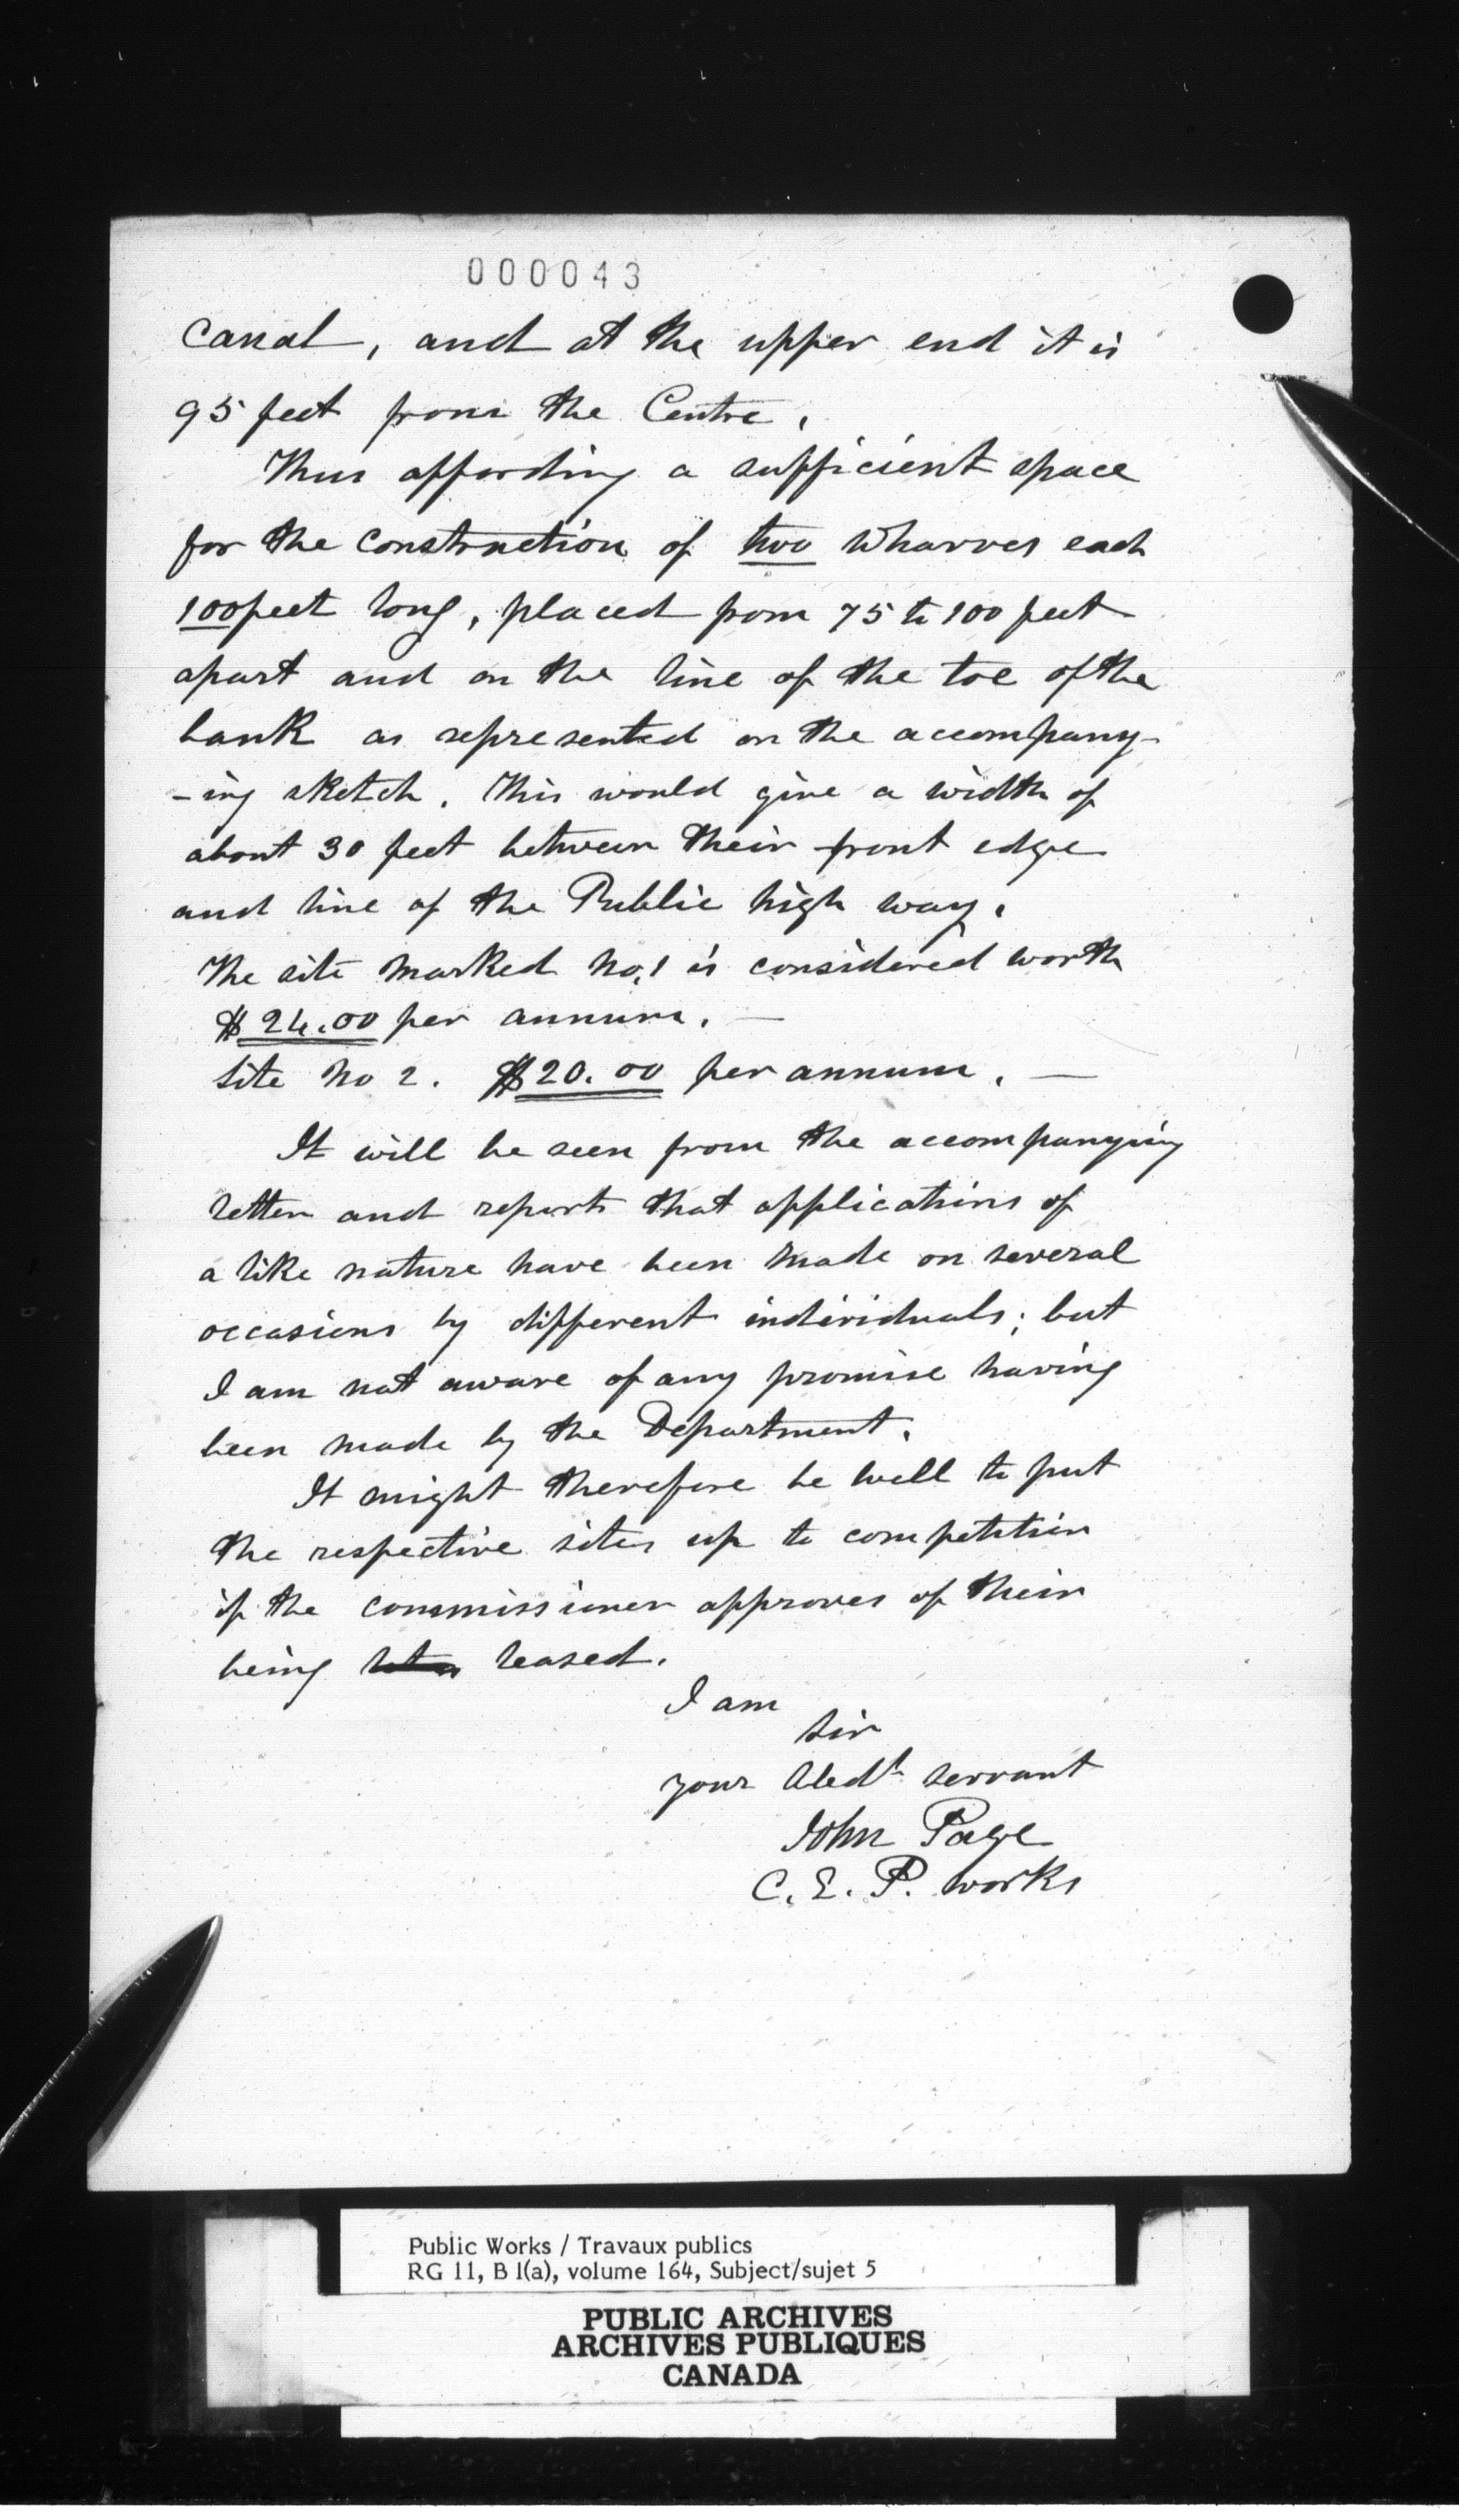 000043
Canal, and at the upper end it is
95 feet from the Centre.
Thus affording a sufficient space
for the construction of two Wharves each
100 feet long, placed from 75 to 100 feet
apart and on the line of the toe of the
bank as represented on the accompany-
-ing sketch. This would give a width of
about 30 feet between their front edge
and line of the Public high way.
The site marked No. 1 is considered worth
$24.00 per annum. —
Site No 2. $20.00 per annum. —
It will be seen from the accompanying
letter and reports that applications of
a like nature have been made on several
occasions by different individuals; but
I am not aware of any promise having
been made by the Department.
It might therefore be well to put
the respective sites up to competition
if the commissioner approves of their
being leased.
I am
Sir
your Obedt servant
John Page
C. E. P. Works
Public Works / Travaux publics
RG 11, B 1(a), volume 164, Subject/sujet 5
PUBLIC ARCHIVES
ARCHIVES PUBLIQUES
CANADA